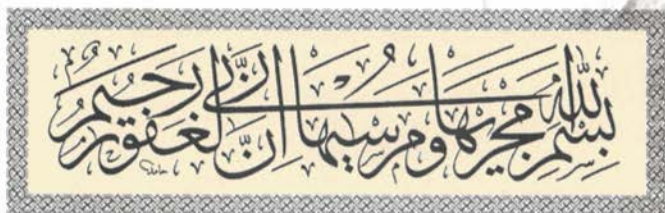 بسم الله مجريها ومرسيها إن ربي لغفور رحيم